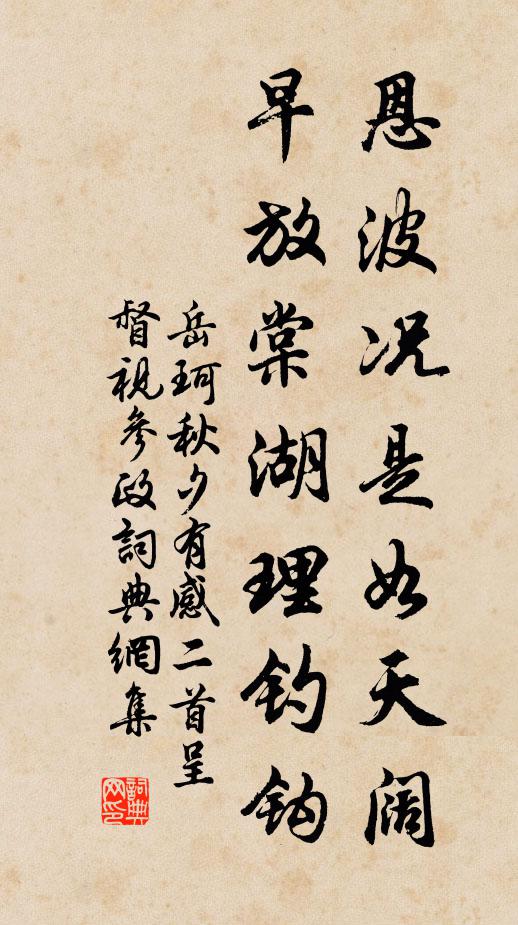 恩波况是如天阔
早放棠湖理钓钩
岳珂秋夕有感二首呈
督視參政詞典網集
詞典
网印